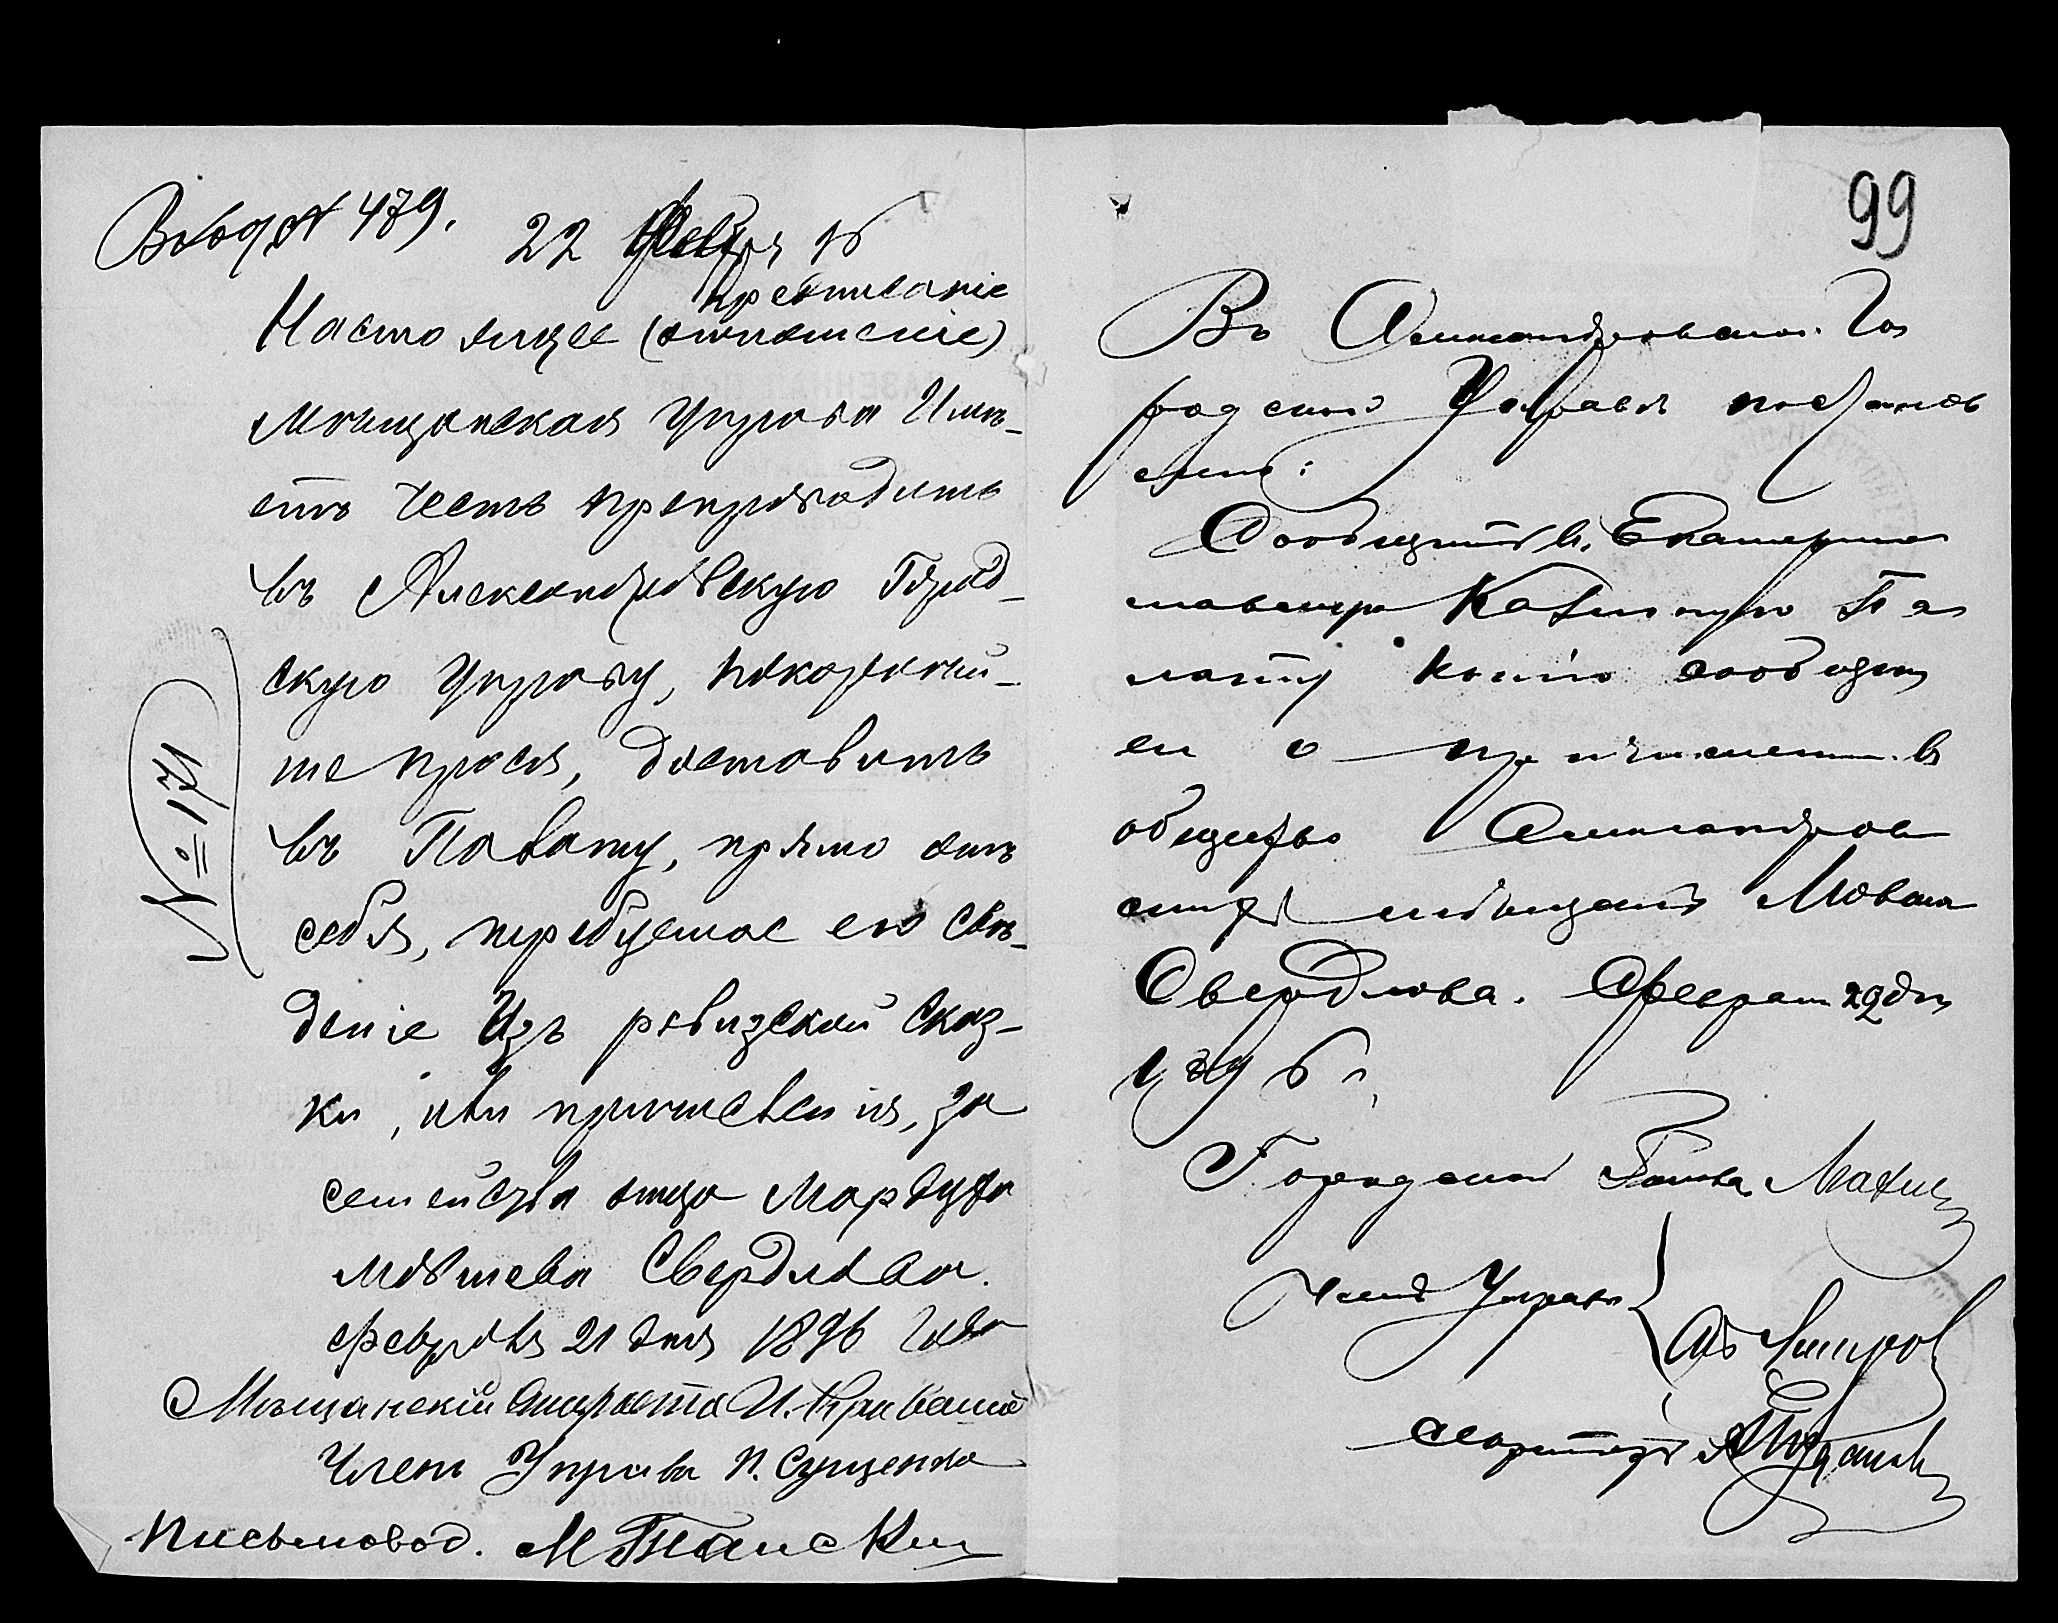 Вход. № 479. 22 Февр. 96
предписаніе
Настоящее (отношеніе)
Мѣщанская Управа Имѣ-
етъ честь препроводить
въ Александровскую Город-
скую Управу, покорнѣй-
ше прося, доставить
въ Палату, прямо отъ
себя, требуемое ею свѣ-
деніе Изъ ревизской сказ-
ки, или причисленія, за
семейства отца Мордуха
Мовшева Свердлова.
Февраля 21 дня 1896 года
Мѣщанскій Староста И.
Членъ Управы П. Сущенко
Письмовод. М.
№ 171
99
Въ Александровской Го
родской Управѣ постанов
лено:
Сообщить въ Екатерино
славскую Казенную Па
лату копію сообщен
ія о причисленіи въ
общество Александров
скихъ мѣщанъ Мовши
Свердлова. Февраля 22 дня
1896 г.
Городской Голова
Членъ Управы
Секретарь